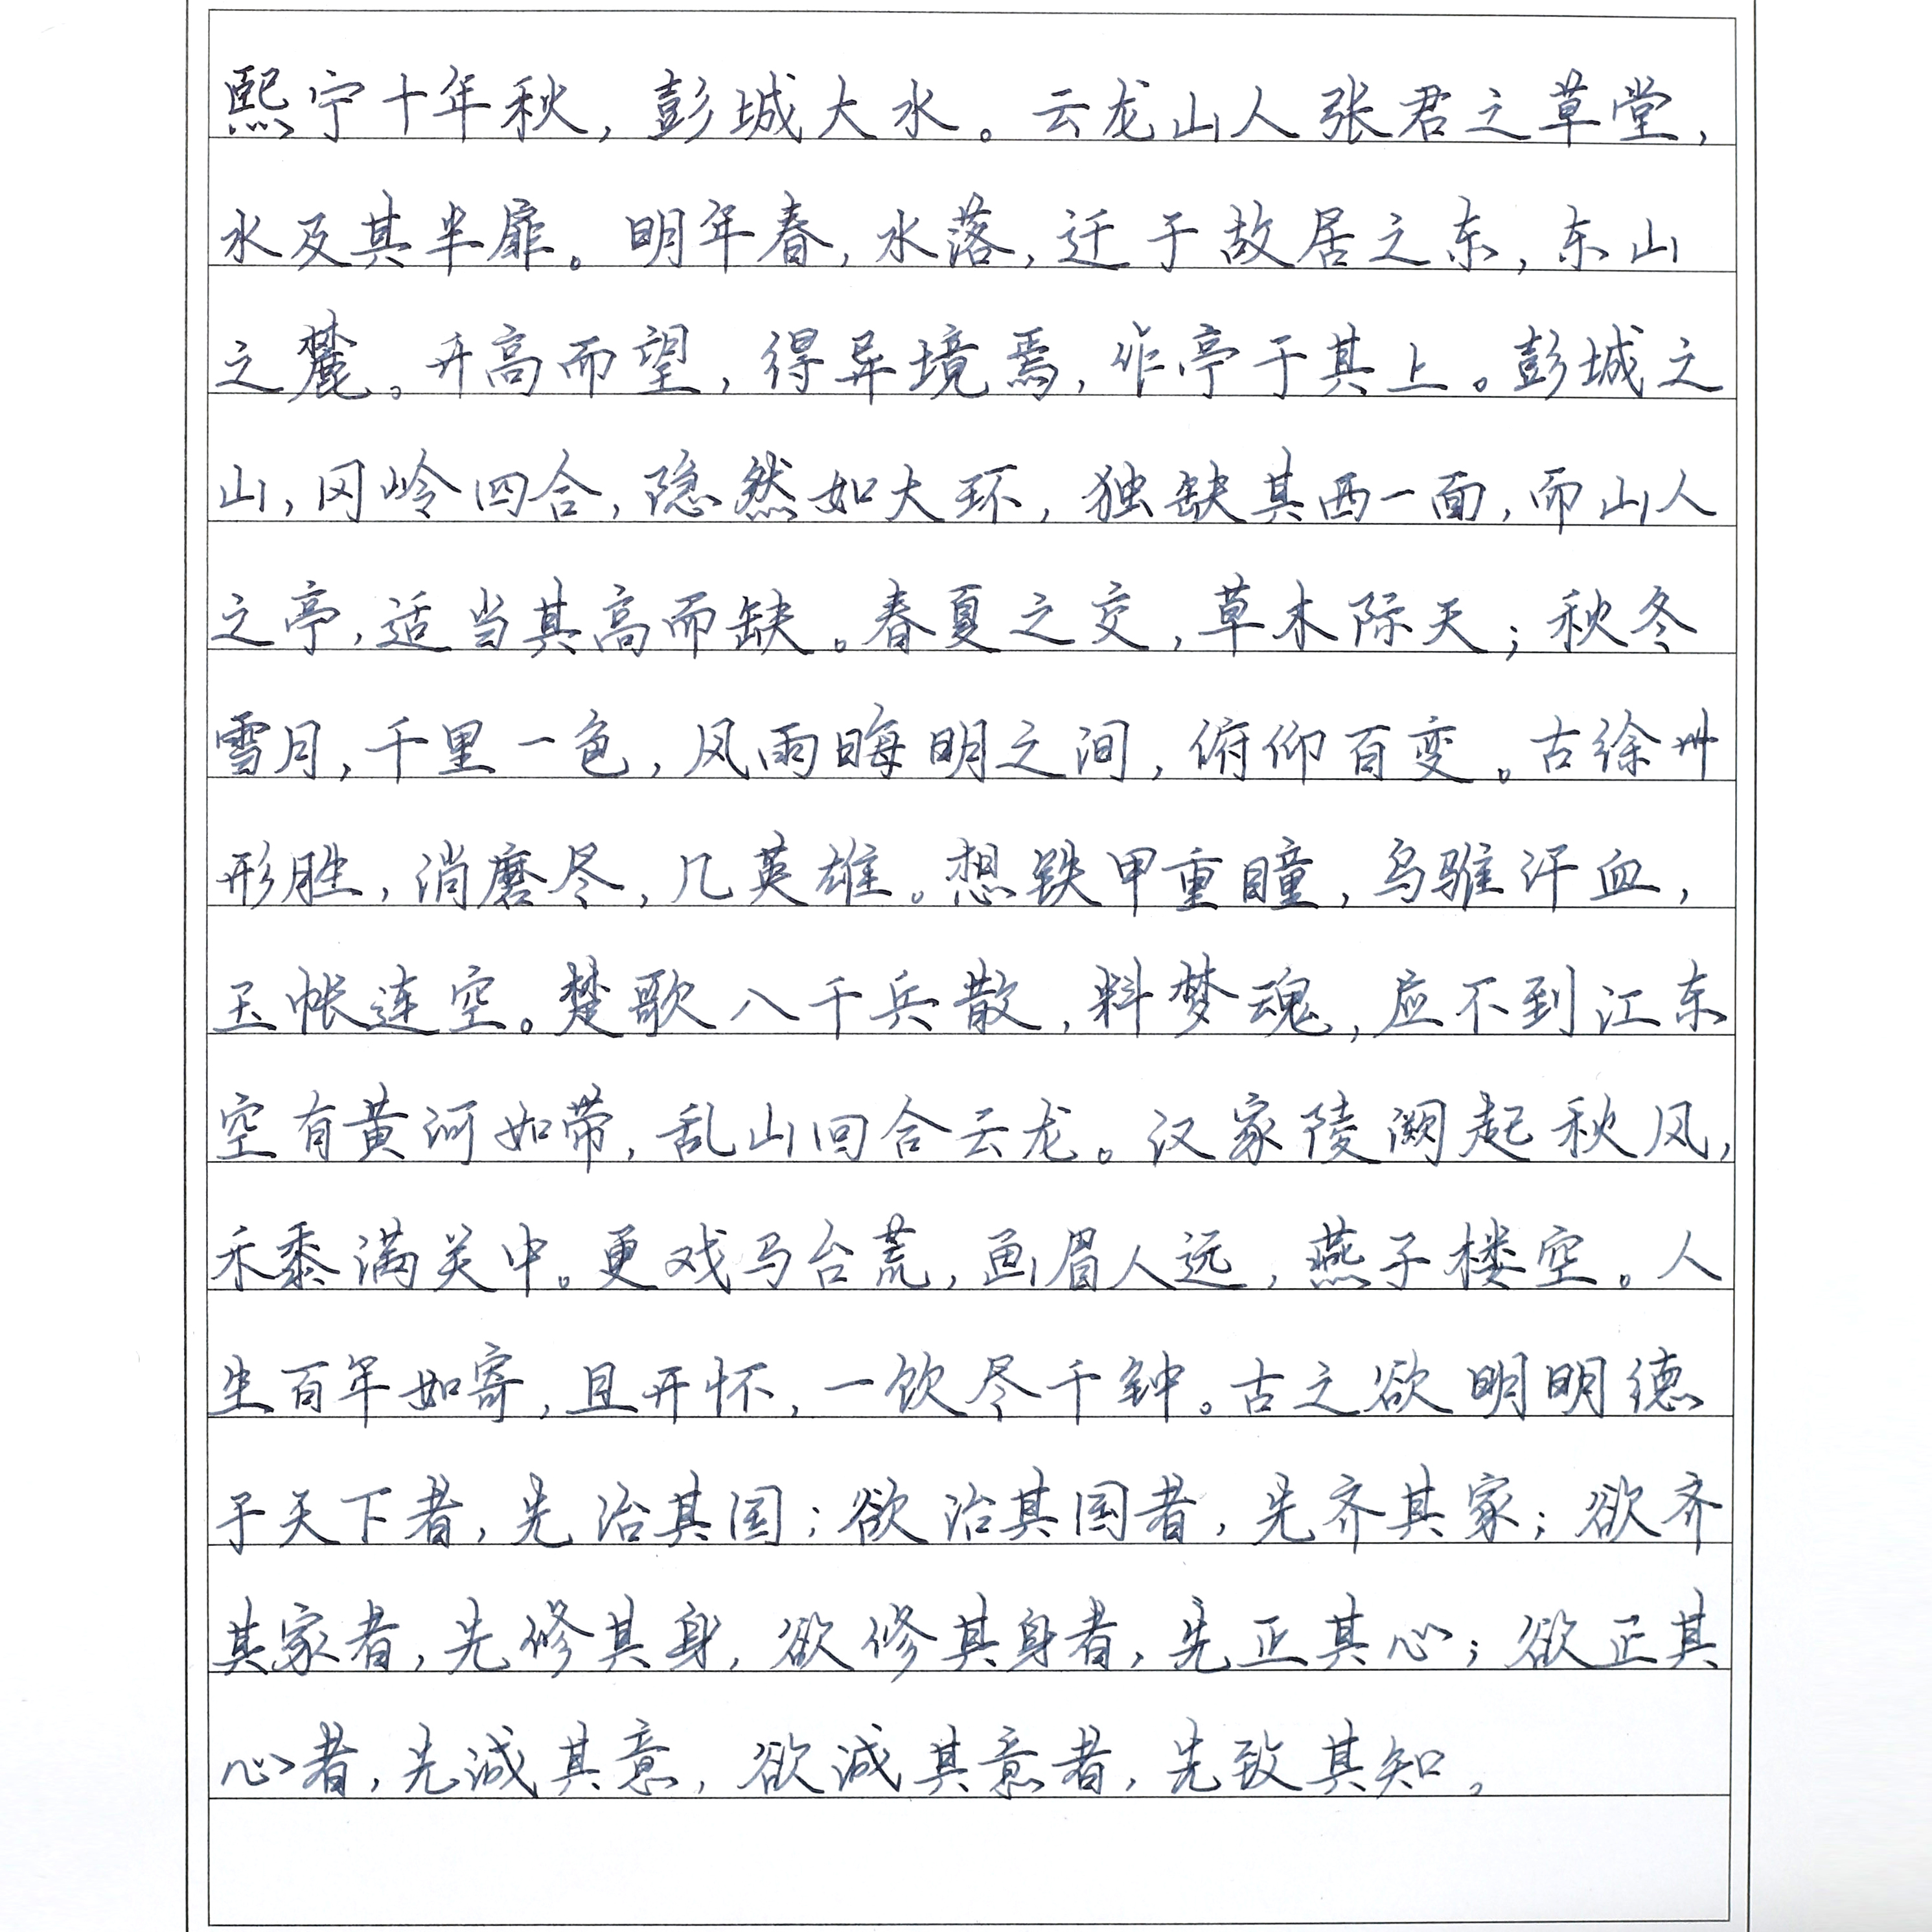 熙宁十年秋，彭城大水。云龙山人张君之草堂，
水及其半扉。明年春，水落，迁于故居之东，东山
之麓。升高而望，得异境焉，作亭于其上。彭城之
山，冈岭四合，隐然如大环，独缺其西一面，而山人
之亭，适当其高而缺。春夏之交，草木际天；秋冬
雪月，千里一色，风雨晦明之间，俯仰百变。古徐州
形胜，消磨尽，几英雄。想铁甲重瞳，乌骓汗血，
玉帐连空。楚歌八千兵散，料梦魂，应不到江东
空有黄河如带，乱山回合云龙。汉家陵阙起秋风，
禾黍满关中。更戏马台荒，画眉人远，燕子楼空。人
生百年如寄，且开怀，一饮尽千钟。古之欲明明德
于天下者，先治其国；欲治其国者，先齐其家；欲齐
其家者，先修其身，欲修其身者，先正其心；欲正其
心者，先诚其意，欲诚其意者，先致其知。